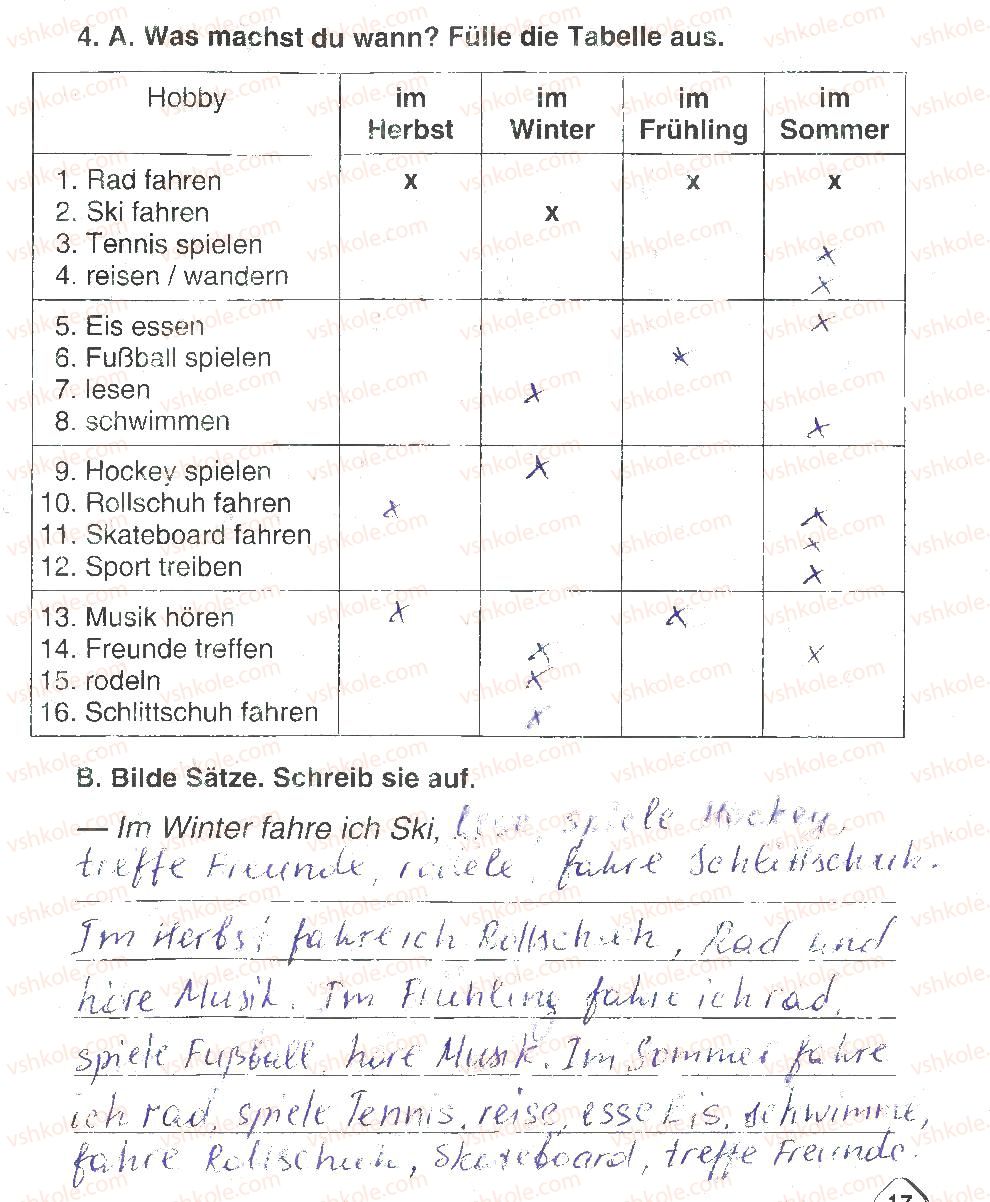 4. A. Was machst du wann? Fülle die Tabelle aus.
Hobby im Herbst im Winter im Frühling im Sommer
1. Rad fahren x x x
2. Ski fahren x
3. Tennis spielen x
4. reisen / wandern x
5. Eis essen x
6. Fußball spielen x
7. lesen x
8. schwimmen x
9. Hockey spielen x
10. Rollschuh fahren x x
11. Skateboard fahren x
12. Sport treiben x
13. Musik hören x x
14. Freunde treffen x x
15. rodeln x
16. Schlittschuh fahren x
B. Bilde Sätze. Schreib sie auf.
— Im Winter fahre ich Ski, lese, spiele Hockey,
treffe Freunde, rodele, fahre Schlittschuh.
Im Herbst fahre ich Rollschuh, Rad und
höre Musik. Im Frühling fahre ich rad,
spiele Fußball, höre Musik. Im Sommer fahre
ich rad, spiele Tennis, reise, esse Eis, schwimme,
fahre Rollschuh, Skateboard, treffe Freunde.
17
vshkole.com